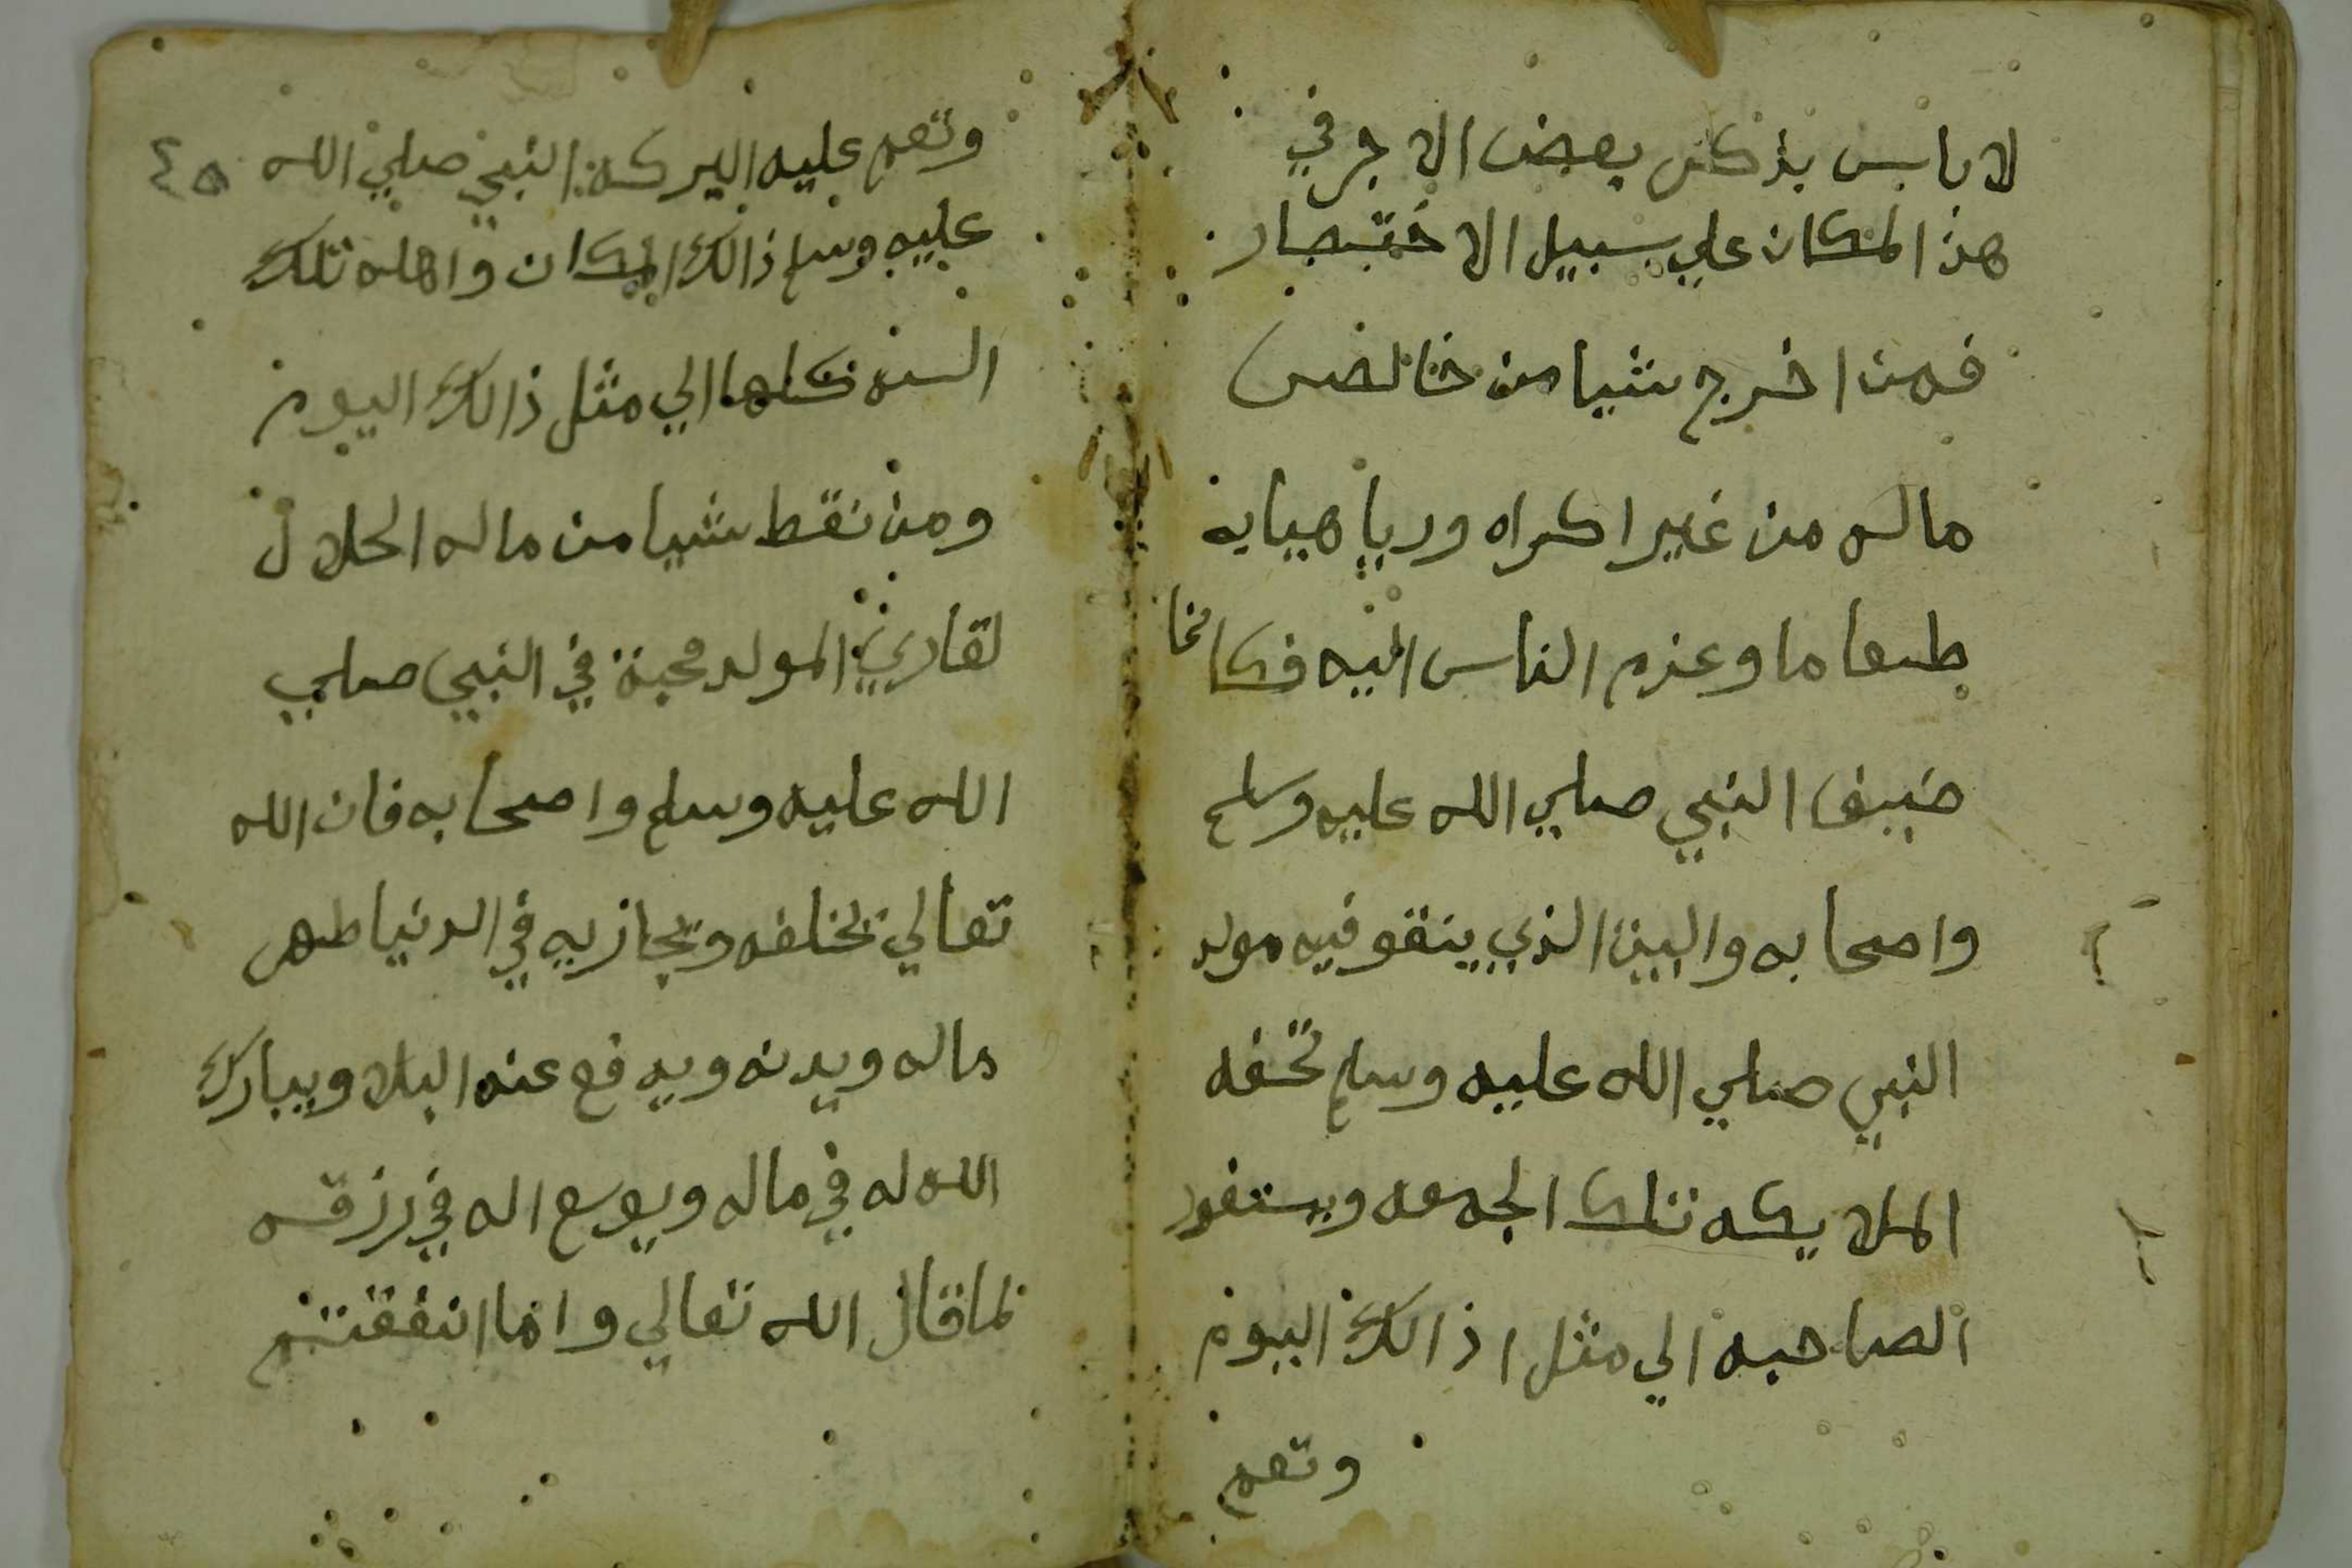 لا باس بذكر بعض الاجر في
هذا المكان علي سبيل الاختصار
فمن اخرج شيا من خالص
ماله من غير اكراه وريا هيايه
طعاما وعزم الناس اليه فكانما
ضيف النبي صلي الله عليه وسلم
واصحابه والبيت الذي ينقو فيه مولد
النبي صلي الله عليه وسلم تحفه
الملايكه تلك الجمعه ويستغفر
الصاحبه الي مثل اذالك اليوم
وتعم
٤٥
وتعم عليه البركة النبي صلي الله
عليه وسلم ذالك المكان واهله تلك
السنه كلها الي مثل ذالك اليوم
ومن نقط شيا من ماله الحلال
لقاري المولد محبة في النبي صلي
الله عليه وسلم واصحابه فان الله
تعالي يخلفه ويجازيه في الدنيا طهر
ماله وبدنه ويدفع عنه البلا ويبارك
الله له في ماله ويوسع اله في رزقه
لما قال الله تعالي واما انفقتتم